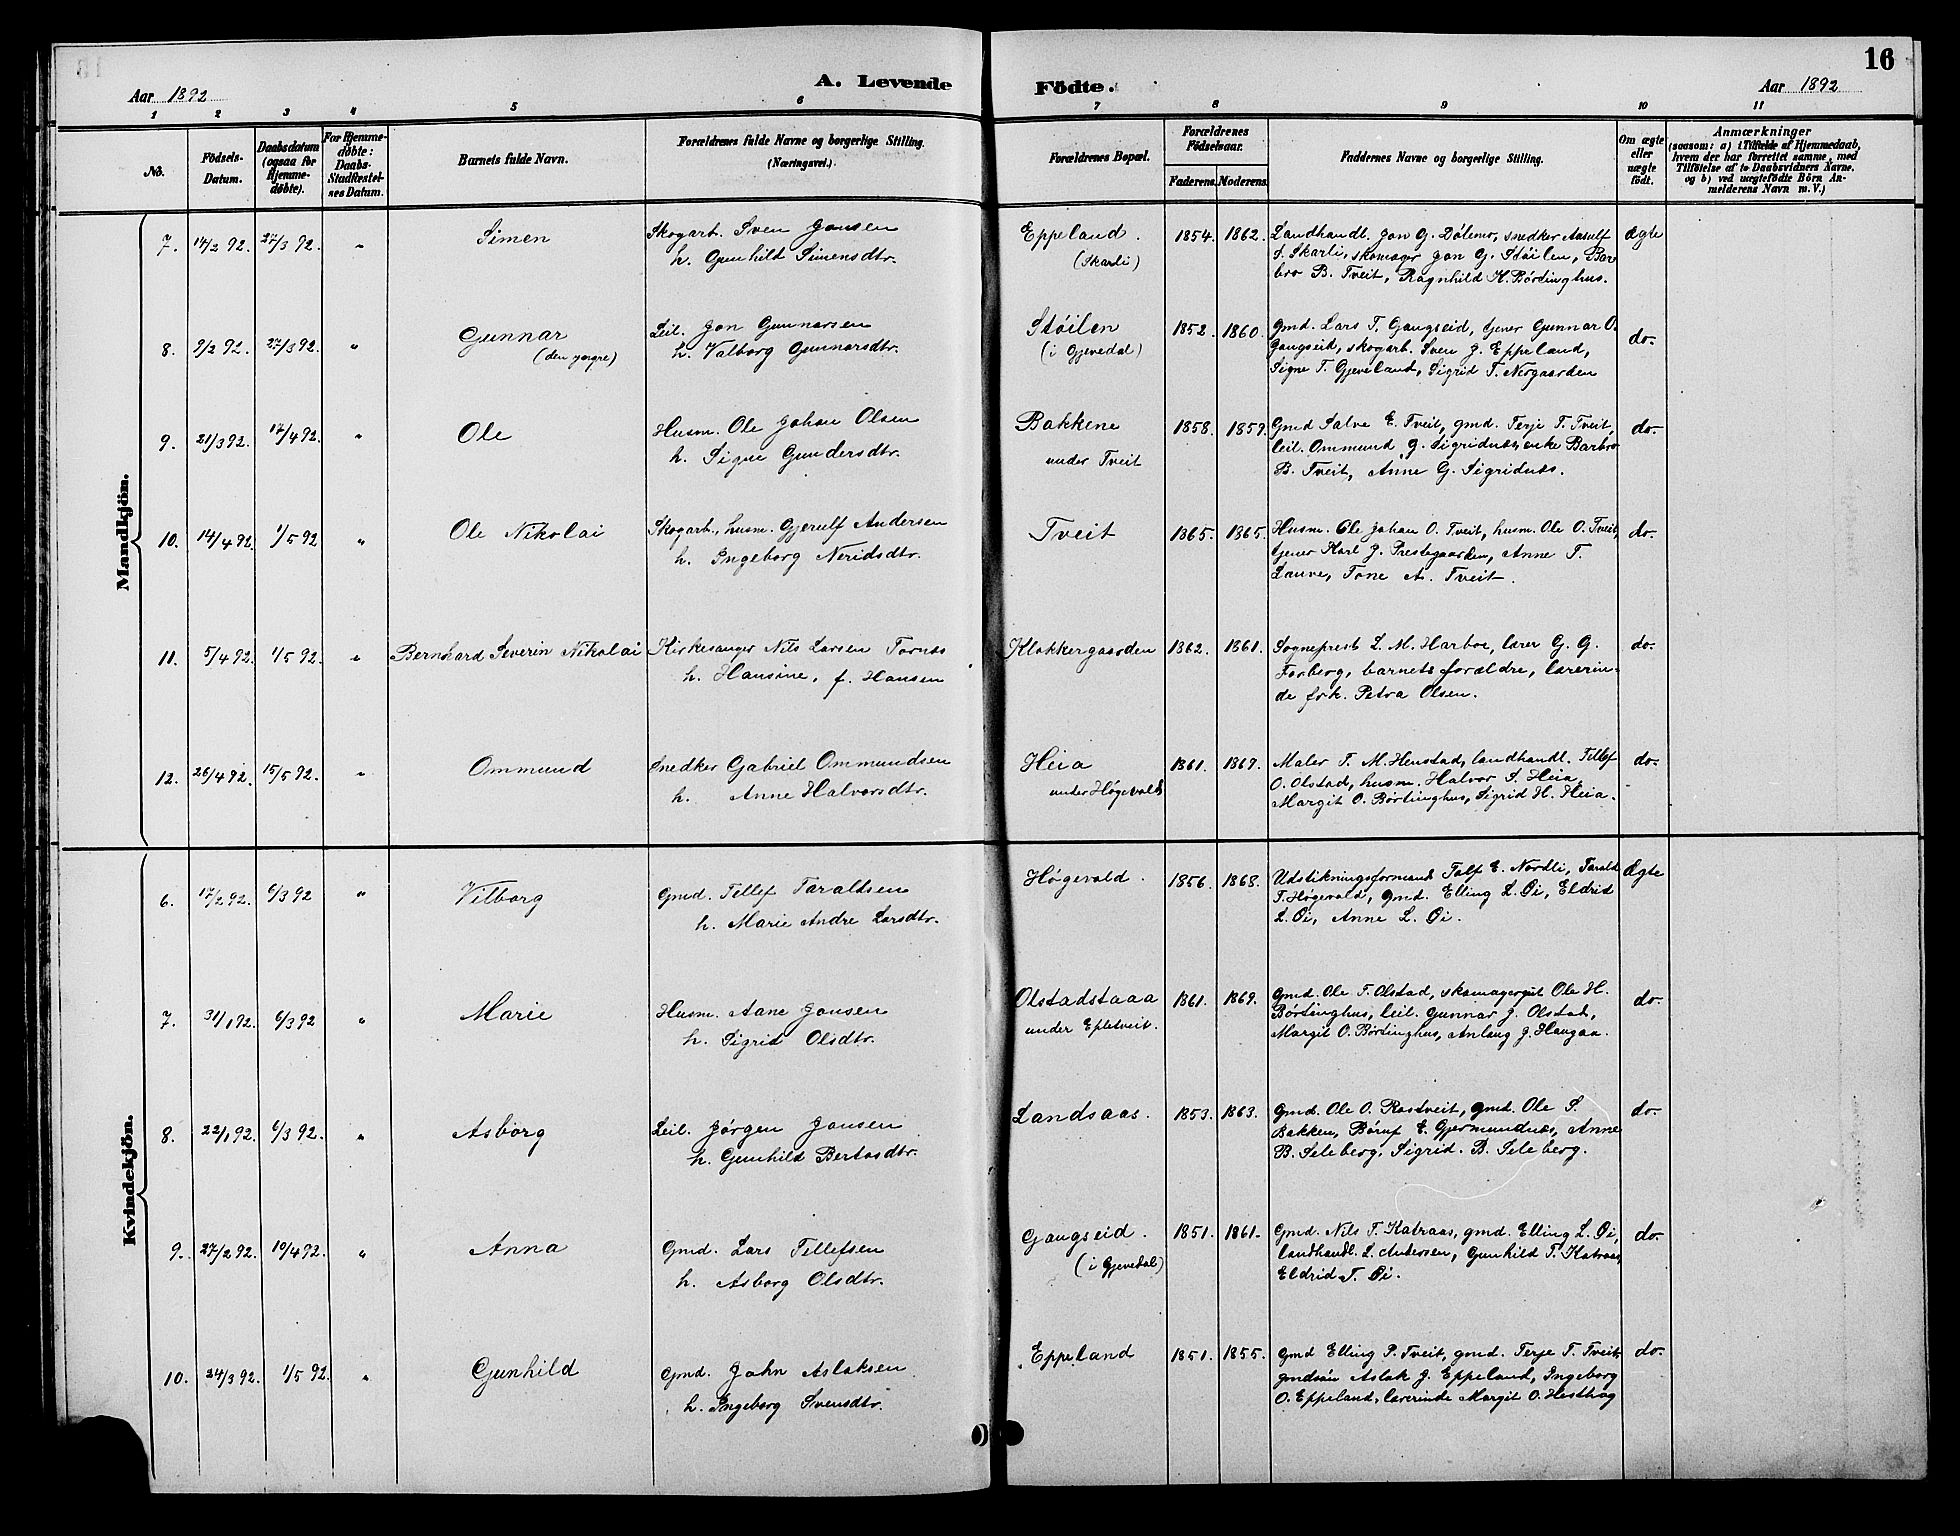 16
A. Levende Födte.
Aar 1892
Aar 1892
1 2 3 4 5 6 7 8 9 10 11
No.
Födsels-Datum.
Daabsdatum (ogsaa for Hjemmedøbte).
For Hjemmedøbte: Daabs-Stadfæstelsens Datum.
Barnets fulde Navn.
Forældrenes fulde Navne og borgerlige Stilling. (Næringsvei.)
Forældrenes Bopæl.
Forældrenes Födselsaar.
Faderens. Moderens.
Faddernes Navne og borgerlige Stilling.
Om ægte eller uægte født.
Anmærkninger
(saasom: a) i Tilfælde af Hjemmedaab, hvem der har forrettet samme, med Tilföielse af to Daabsvidners Navne. og b) ved uægtefödte Börn Anmelderens Navn m. V.)
Mandkjön.
7. 14/2 92. 27/3 92. " Simen
Skogarb. Sven Jonsen
h. Gunhild Simensdtr.
Eppeland. (Skarli)
1854. 1862.
Landhandl. Jon G. Dølemo, snedker Aasulf
S. Skarli, skomager Jon G. Støilen, Bar
bro B. Tveit, Ragnhild H. Børtinghus.
Ægte
8. 9/2 92. 27/3 92. " Gunnar (den yngre)
Leil. Jon Gunnarsen
h. Valborg Gunnarsdtr.
Støilen (i Gjevedal)
1852. 1860.
Gmd. Lars T. Gangseid, Gjever Gunnar O.
Gangseid, skogarb. Sven J. Eppeland,
Signe T. Gjeveland, Sigrid T. Nergaarden
do.
9. 21/3 92. 17/4 92. " Ole
Husm. Ole Johan Olsen
h. Signe Gundersdtr.
Bakkene under Tveit
1858. 1859.
Gmd Salve E. Tveit, gmd. Terje T. Tveit,
leil. Ommund G. Sigridnæs, enke Barbro
B. Tveit, Anne G. Sigridnæs.
do.
10. 14/4 92. 1/5 92 " Ole Nikolai
Skogarb., husm. Gjerulf Andersen
h. Ingeborg Neridsdtr.
Tveit
1865. 1865.
Husm. Ole Johan O. Tveit, husm. Ole O. Tveit,
Gjever Karl J. Prestegaarden, Anne T.
Lauve, Tone A. Tveit.
do.
11. 5/4 92. 1/5 92. " Bernhard Severin Nikolai
Kirkesanger Nils Larsen Tornes
h. Hansine, f. Hansen
Klokkergaarden
1862. 1861.
Sogneprest L. M. Harboe, lærer G. G.
Forberg, barnets forældre, lærerin-
de frk. Petra Olsen.
do.
12. 26/4 92. 15/5 92. " Ommund
Snedker Gabriel Ommundsen
h. Anne Halvorsdtr.
Heia under Høgevold
1861. 1867.
Maler T. M. Henstad, landhandl. Tellef
O. Olstad, husm. Halvor S. Heia,
Margit O. Børtinghus, Sigrid H. Heia.
do.
Kvindekjön.
6. 17/2 92. 6/3 92 " Vilborg
Gmd. Tellef Taraldsen
h. Marie Andre Larsdtr.
Høgevold.
1856. 1868.
Udstikningsformand Tolf E. Nordli, Tarald
T. Høgevold, gmd. Elling L. Øi, Eldrid
L. Øi, Anne L. Øi.
Ægte
7. 31/1 92. 6/3 92 " Marie
Husm. Aane Jonsen
h. Sigrid Olsdtr.
Olstadstaaa under Epletveit.
1861. 1869.
Gmd. Ole T. Olstad, skomagergut Ole H.
Børtinghus, leil. Gunnar J. Olstad,
Margit O. Børtinghus, Anlaug J. Haugaa.
do.
8. 22/1 92. 6/3 92. " Asborg
Leil. Jørgen Jonsen
h. Gunhild Bertosdtr.
Landsaas.
1853. 1863.
Gmd. Ole O. Rostveit, gmd. Ole S.
Bakken, Børuf E. Gjermundnæs, Anne
B. Seleberg, Sigrid. B. Seleberg.
do.
9. 27/2 92. 10/4 92. " Anna
Gmd. Lars Tellefsen
h. Asborg Olsdtr.
Gangseid. (i Gjevedal)
1851. 1861.
Gmd. Nils T. Katraas, gmd. Elling L. Øi,
landhandl. L. Andersen, Gunhild T. Katraas,
Eldrid T. Øi.
do.
10. 24/3 92. 1/5 92. " Gunhild
Gmd. John Aslaksen
h. Ingeborg Svensdtr.
Eppeland
1851. 1855.
Gmd Elling P. Tveit, gmd. Terje T. Tveit,
gmdsøn Aslak J. Eppeland, Ingeborg
O. Eppeland, lærerinde Margit O. Hesthag
do.